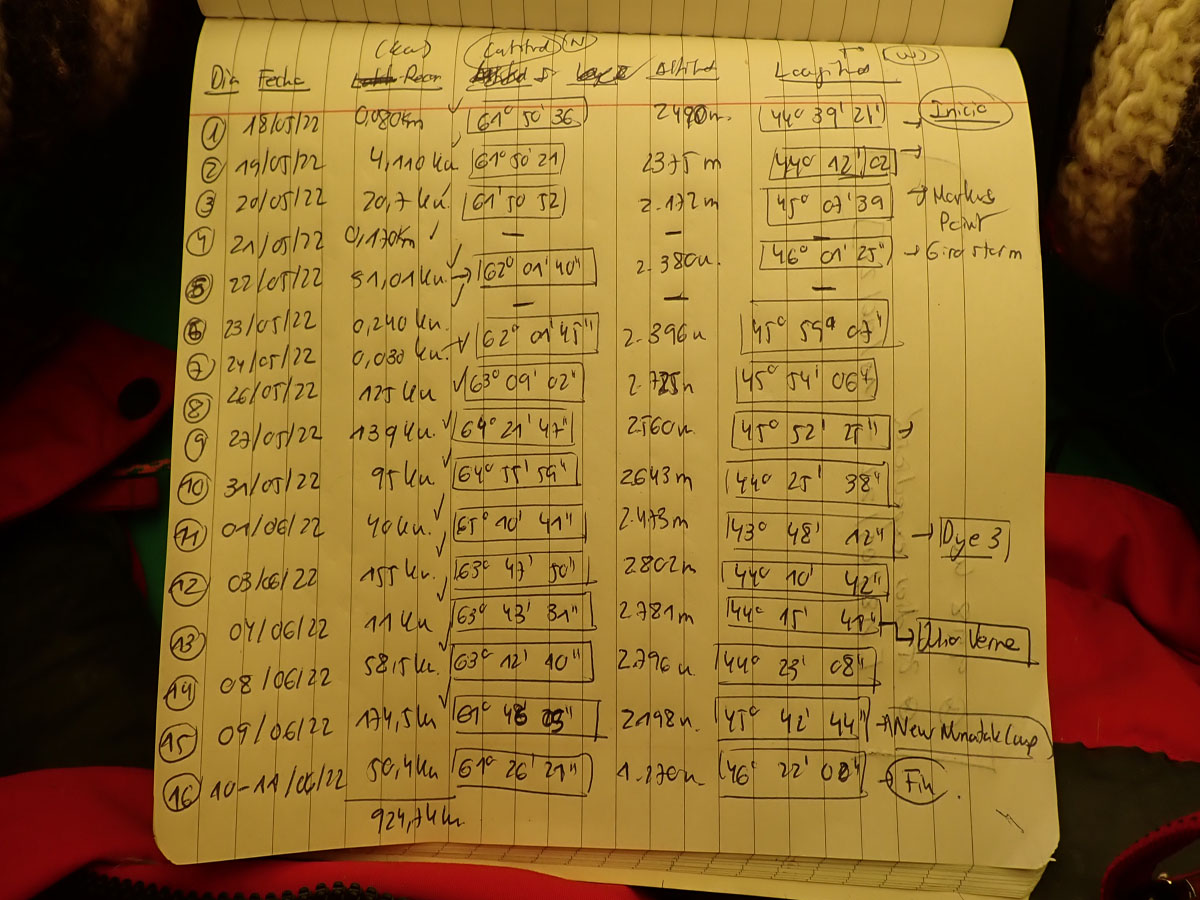 (km) (Latitud) (N) (W)
Dia Fecha Recor Altitud Longitud
① 18/05/22 0,080km 61° 50' 36 2490m. 44° 39' 21' → Inicio
② 19/05/22 4,110 km 61° 50' 21 2375 m 44° 12' 02 →
③ 20/05/22 20,7 km. 61° 50 52 2.172 m 45° 07' 39 → Markus
Point
④ 21/05/22 0,170km — — —
⑤ 22/05/22 51,01 km. → 62° 01' 40" 2.380m. 46° 01' 25" → Giro storm
⑥ 23/05/22 0,240 km. — — —
⑦ 24/05/22 0,030 km. 62° 01' 45" 2.396m 45° 59' 07"
⑧ 26/05/22 125 km 63° 09' 02" 2.725m 45° 54' 06"
⑨ 27/05/22 139 km. 64° 21' 47" 2560m. 45° 52' 25" →
⑩ 31/05/22 95 km. 64° 55' 59" 2643m 44° 25' 38"
⑪ 01/06/22 40 km. 65° 10' 41" 2.473m 43° 48' 12" → Dye 3
⑫ 03/06/22 155 km. 63° 47' 50" 2802m 44° 10' 42"
⑬ 04/06/22 11 km 63° 43' 31" 2.781m 44° 15' 41" → Julio Verne
⑭ 08/06/22 58,5 km. 63° 12' 10" 2.796m 44° 23' 08"
⑮ 09/06/22 174,5 km 61° 48 05" 2198m. 45° 42' 44" → New Nunatak Camp
⑯ 10-11/06/22 50,4 km 61° 26' 21" 1.270m. 46° 22' 02" → Fin.
924,74 km